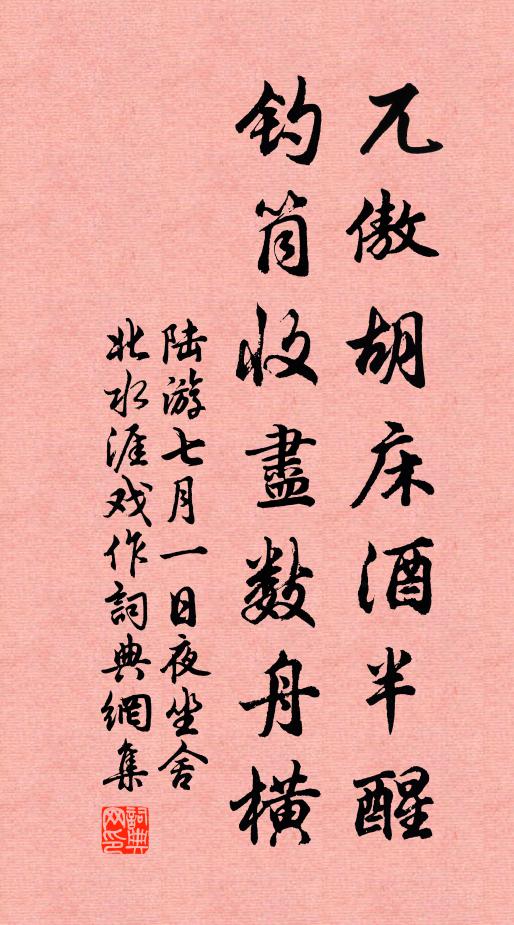 兀傲胡床酒半醒
钓筒收盡数舟横
陆游七月一日夜坐舍
北水涯戏作詞典網集
詞典网印